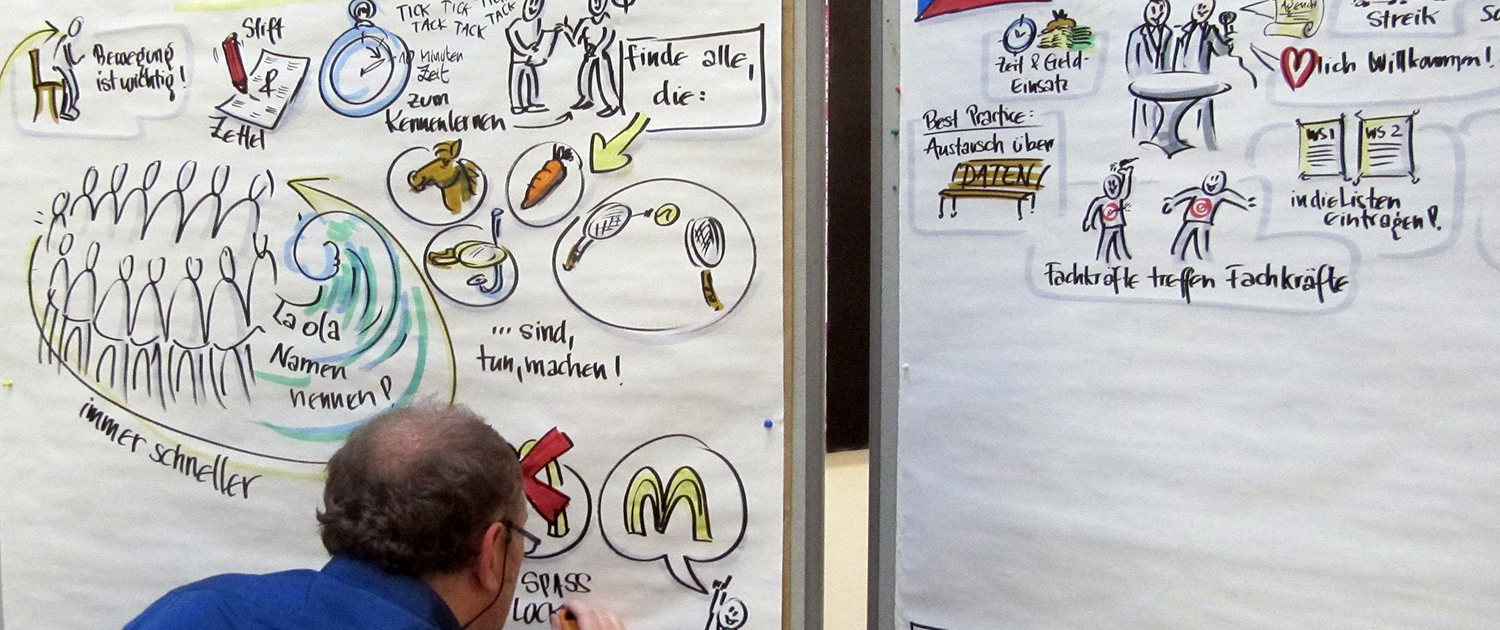 TICK TICK
TACK TACK TACK
Bewegung
ist wichtig!
Stift
Zettel
10 Minuten
Zeit
zum
Kennenlernen
finde alle,
die:
La ola
Namen
nennen!
immer schneller
... sind,
tun, machen!
SPASS
LOCK
Agenda
Streik
Zeit & Geld-
Einsatz
lich Willkommen!
Best Practice:
Austausch über
DATEN
WS 1
WS 2
in die Listen
eintragen!
Fachkräfte treffen Fachkräfte